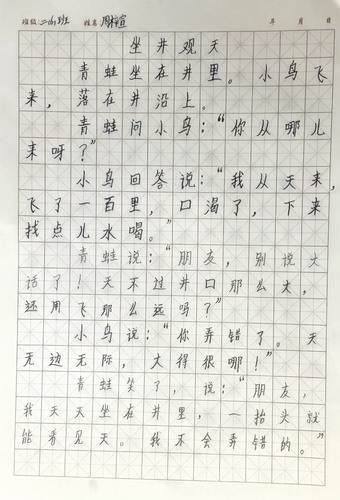 班级:二(4)班 姓名 周梓宣 年 月 日
坐井观天
青蛙坐在井里。小鸟飞
来，落在井沿上。
青蛙问小鸟：“你从哪儿
来呀？”
小鸟回答说：“我从天来，
飞了一百里，口渴了，下来
找点儿水喝。”
青蛙说：“朋友，别说大
话了！天不过井口那么大，
还用飞那么远吗？”
小鸟说：“你弄错了。天
无边无际，大得很哪！”
青蛙笑了，说：“朋友，
我天天坐在井里，一抬头就
能看见天。我不会弄错的。”